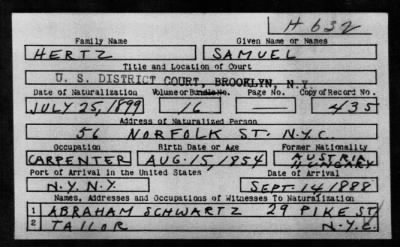 H 632
Family Name Given Name or Names
HERTZ SAMUEL
Title and Location of Court
U. S. DISTRICT COURT, BROOKLYN, N.Y.
Date of Naturalization Volume or Bundle No. Page No. Copy of Record No.
JULY 25, 1899 16 — 435
Address of Naturalized Person
56 NORFOLK ST. N.Y.C.
Occupation Birth Date or Age Former Nationality
CARPENTER AUG. 15, 1854 AUSTRIA HUNGARY
Port of Arrival in the United States Date of Arrival
N.Y. N.Y. SEPT. 14, 1888
Names, Addresses and Occupations of Witnesses To Naturalization
1 ABRAHAM SCHWARTZ 29 PIKE ST.
2 TAILOR N.Y.C.